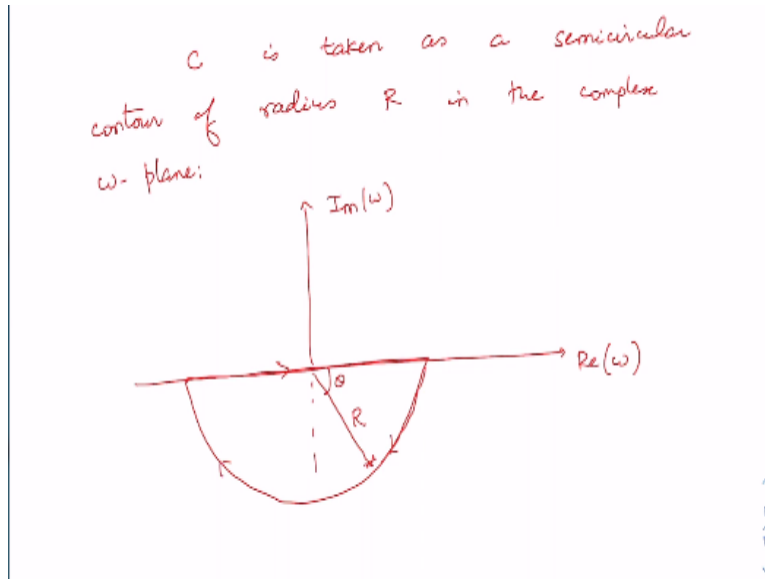 C is taken as a semicircular
contour of radius R in the complex
ω- plane:
Im(ω)
Re(ω)
θ
R